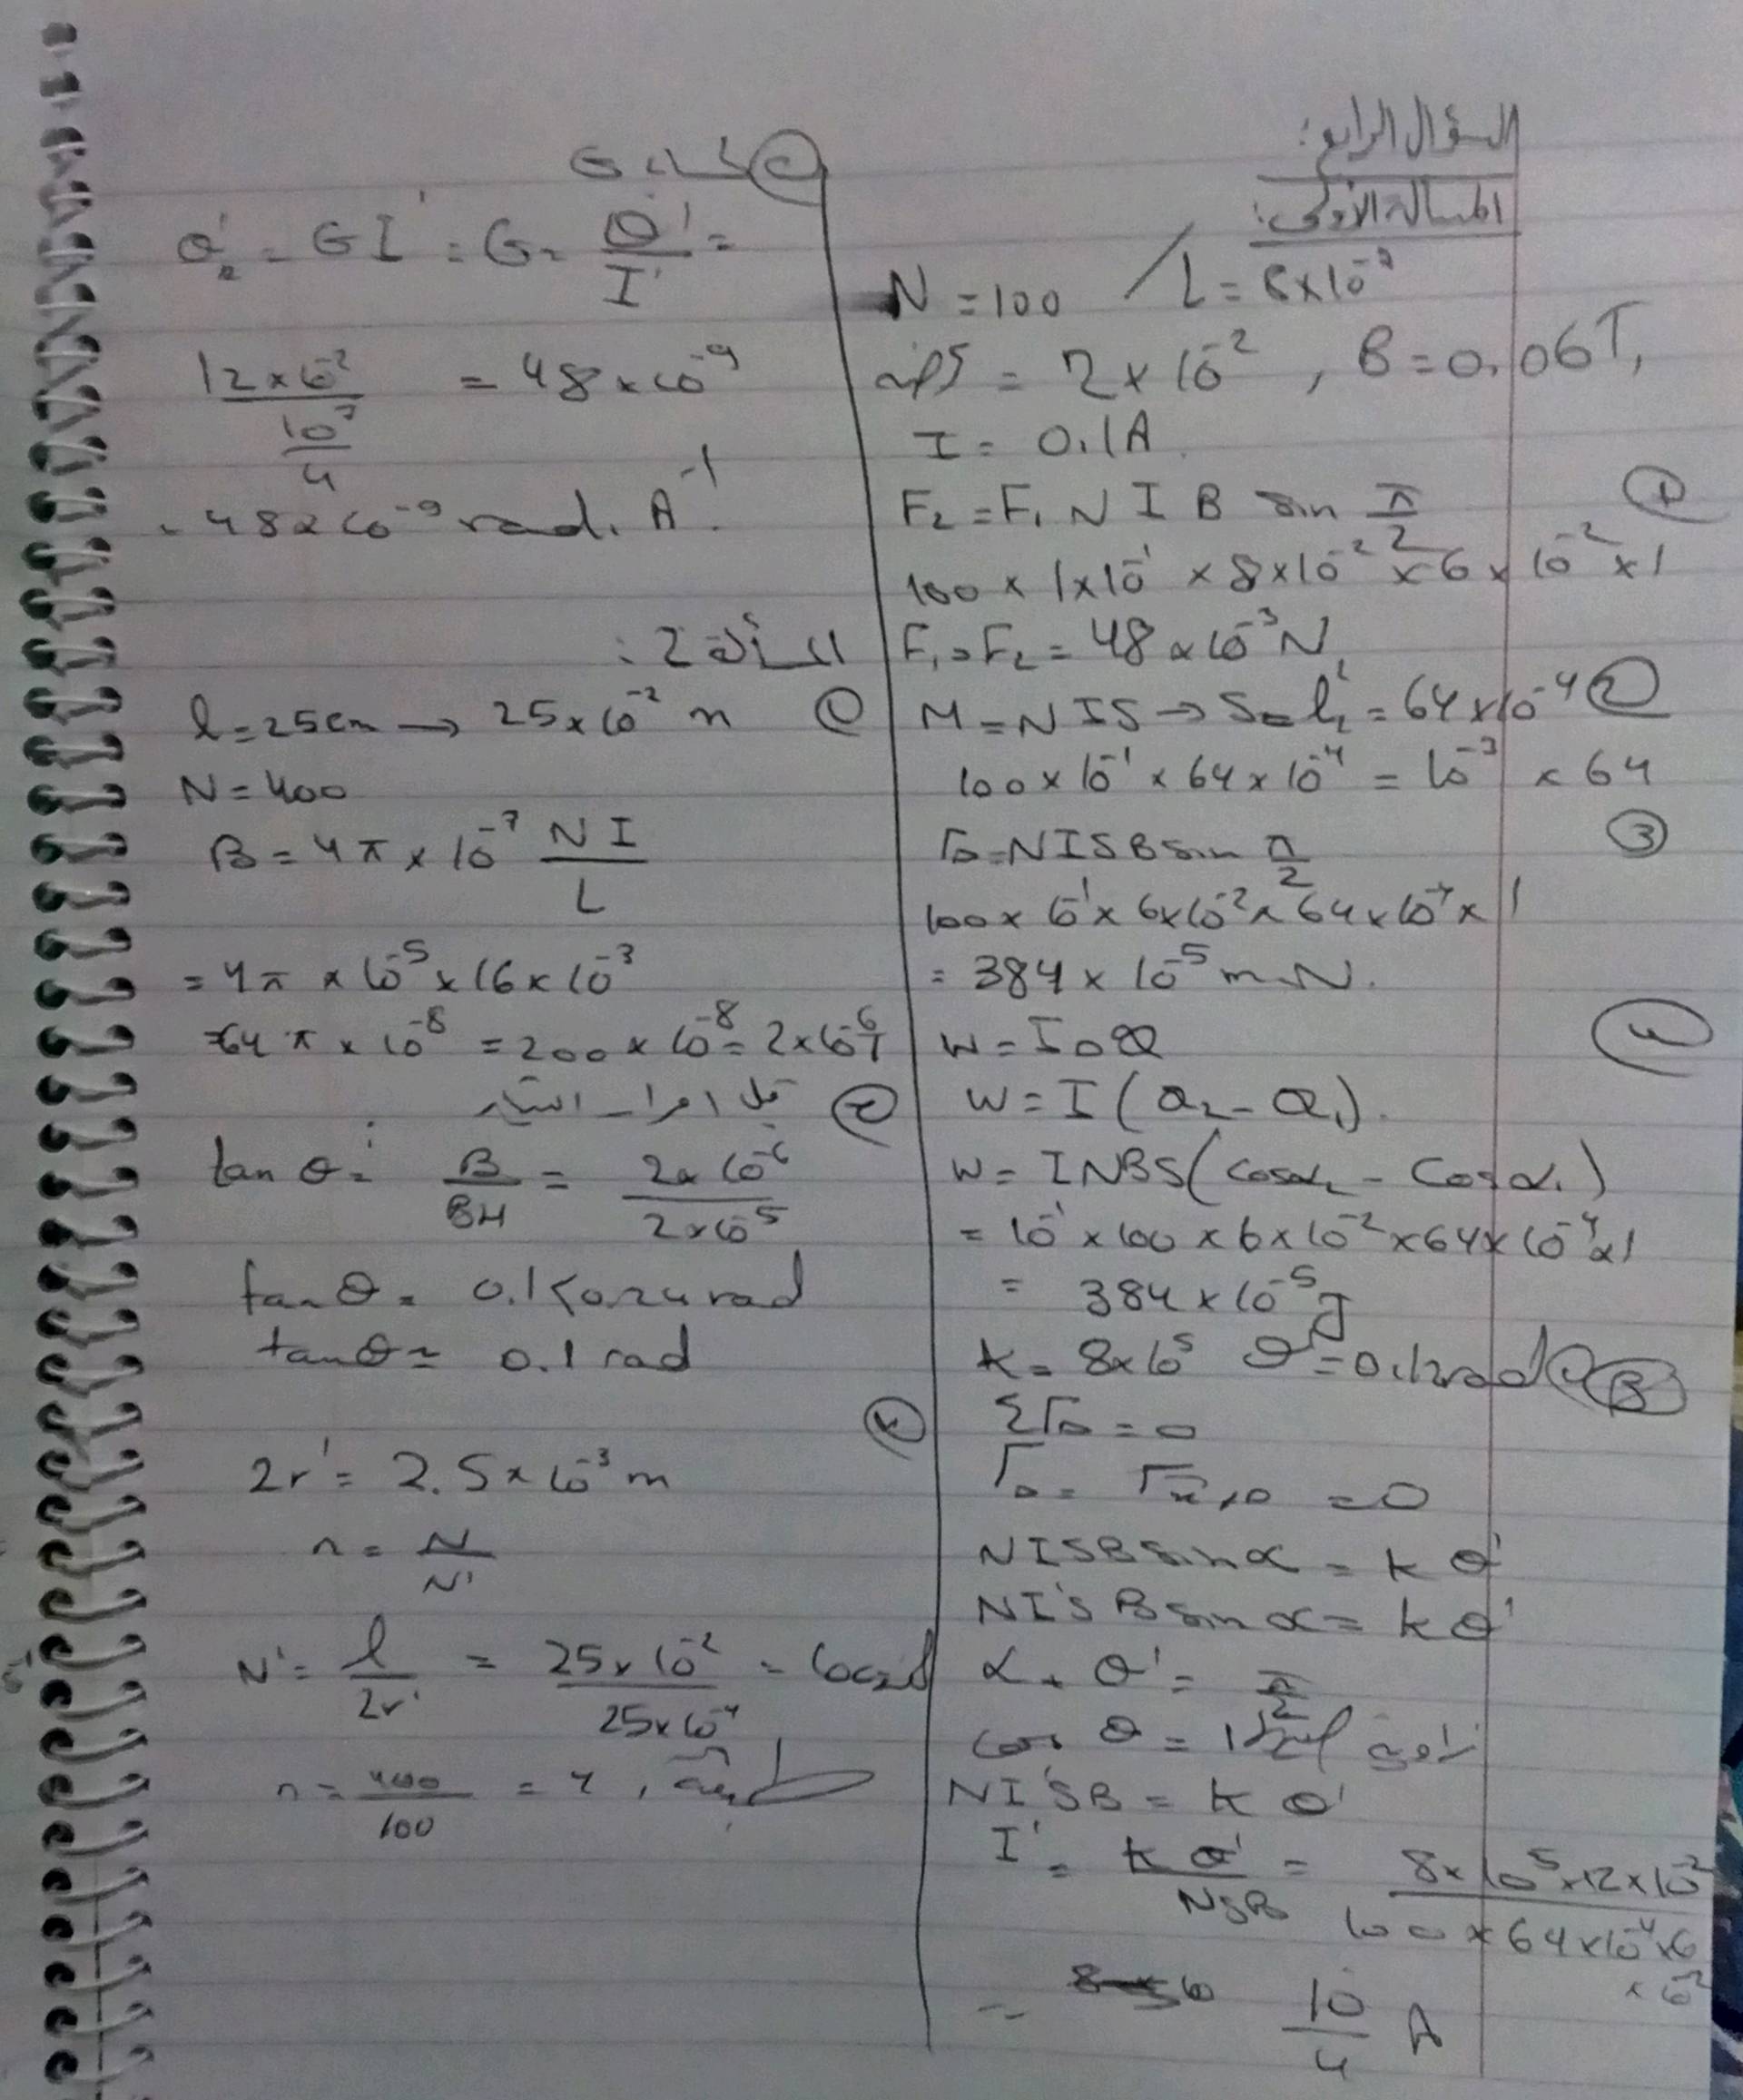 السؤال الرابع:
المسألة الأولى:
N = 100 / L = 8×10⁻²
= 2×10⁻² , B = 0.06T,
I = 0.1A
① F₂ = F₁ N I B sin π/2
100 × 1×10⁻¹ × 8×10⁻² × 6 × 10⁻² × 1
F₁ = F₂ = 48 × 10⁻³ N
② M = N I S → S = l² = 64×10⁻⁴
100 × 10⁻¹ × 64 × 10⁻⁴ = 10⁻³ × 64
③ ΓΔ = NISB sin π/2
100 × 10⁻¹ × 6×10⁻² × 64×10⁻⁴ × 1
= 384 × 10⁻⁵ m.N.
④ W = I Δ Φ
W = I (Φ₂ - Φ₁).
W = INBS (cos α₂ - cos α₁)
= 10⁻¹ × 100 × 6×10⁻² × 64×10⁻⁴ × 1
= 384 × 10⁻⁵ J
B k = 8×10⁵ θ' = 0.12 rad
ΣΓΔ = 0
= 0
NISB sin α = k θ'
NI'SB sin α = k θ'
α + θ' = π/2
cos θ = 1
NI'SB = k θ'
I' = kθ'/NSB = 8×10⁵×12×10⁻²/100×64×10⁻⁴×6×10⁻²
= 10/4 A
G
θ'₂ = GI' = G = θ'/I' =
12×10⁻²/10⁻³/4 = 48×10⁻⁹
= 48×10⁻⁹ rad. A⁻¹.
المسألة 2 :
① l = 25cm → 25×10⁻² m
N = 400
B = 4π × 10⁻⁷ NI/L
= 4π × 10⁻⁵ × 16×10⁻³
= 64π × 10⁻⁸ = 200 × 10⁻⁸ = 2×10⁻⁶ T
② قبل امرار التيار
tan θ = B/BH = 2×10⁻⁶/2×10⁻⁵
tan θ = 0.1 < 0.24 rad
tan θ ≈ 0.1 rad
2r' = 2.5×10⁻³ m
n = N/N'
N' = l/2r' = 25×10⁻²/25×10⁻⁴ = 100
n = 400/100 = 4